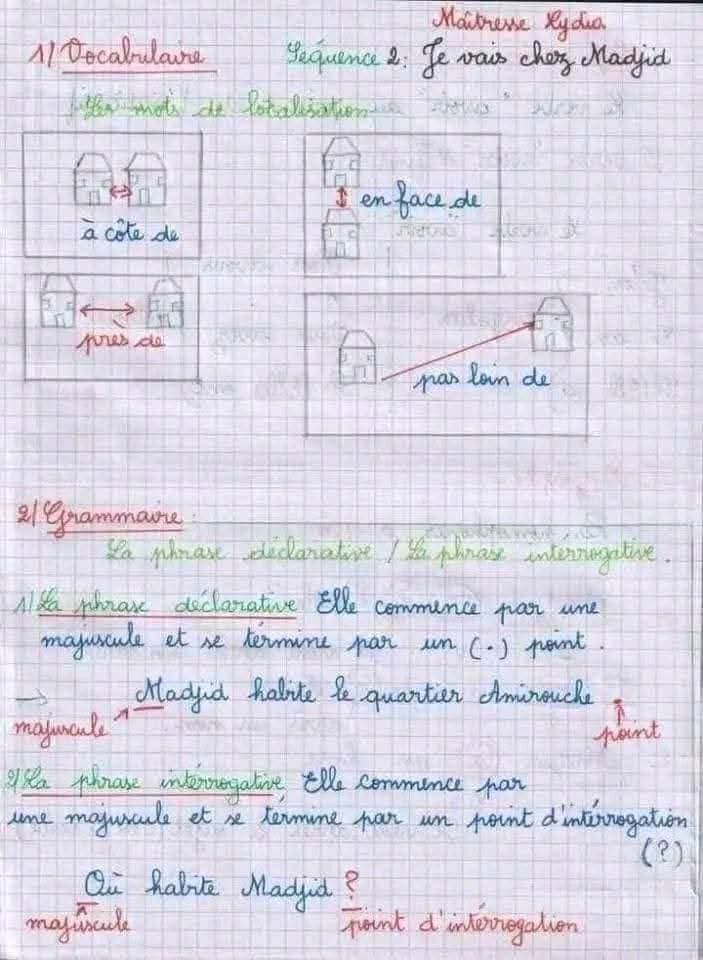 Maîtresse Lydia
1/ Vocabulaire Séquence 2: Je vais chez Madjid
Les mots de localisation
à côte de
en face de
près de
pas loin de
2/ Grammaire:
La phrase déclarative / La phrase interrogative.
1/ La phrase déclarative Elle commence par une
majuscule et se términe par un (.) point.
→ Madjid habite le quartier Amirouche.
majuscule point
2/ La phrase intérrogative Elle commence par
une majuscule et se términe par un point d'intérrogation
(?)
Où habite Madjid ?
majuscule point d'intérrogation